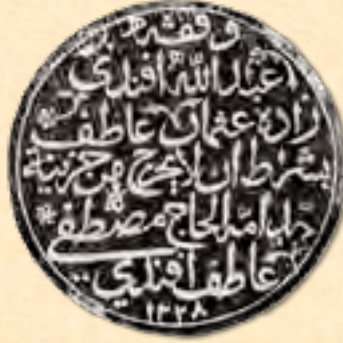 وقفه
عبد الله افندی
زاده عثمان عاطف
بشرط ان لا يخرج من خزينة
الحاج مصطفى
عاطف افندی
١٢٢٨